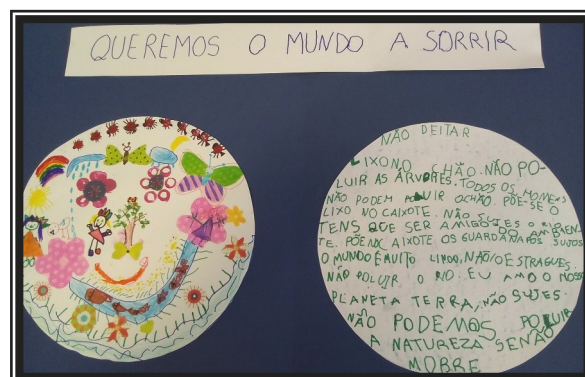 QUEREMOS O MUNDO A SORRIR
NÃO DEITAR
LIXO NO CHÃO. NÃO PO-
LUIR AS ÁRVORES. TODOS OS HOMENS
NÃO PODEM POLUIR OCHÃO. PÕE-SE O
LIXO NO CAIXOTE. NÃO SUJES O
TENS QUE SER AMIGO DO AMBIEN-
TE. PÕE NO CAIXOTE OS GUARDANAPOS SUJOS
O MUNDO É MUITO LINDO, NÃO O ESTRAGUES
NÃO POLUIR O RIO. EU AMO O NOSSO
PLANETA TERRA, NÃO SUJES.
NÃO PODEMOS POLUIR
A NATUREZA SENÃO
MOBRE